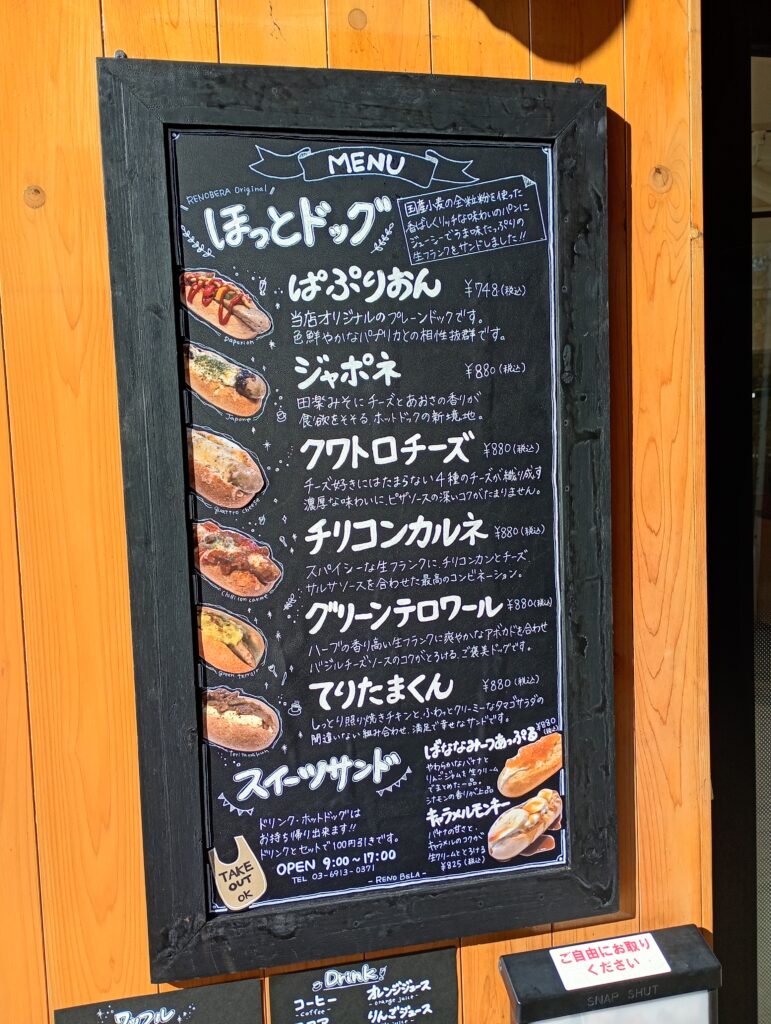 MENU
RENOBERA Original
ほっとドッグ
国産小麦の全粒粉を使った
香ばしくリッチな味わいのパンに
ジューシーでうま味たっぷりの
生フランクをサンドしました!!
ぱぷりおん ¥748(税込)
当店オリジナルのプレーンドックです。
色鮮やかなパプリカとの相性抜群です。
Paperion
ジャポネ ¥880(税込)
田楽みそにチーズとあおさの香りが
食欲をそそるホットドックの新境地。
Japone
クワトロチーズ ¥880(税込)
チーズ好きにはたまらない4種のチーズが織り成す
濃厚な味わいに、ピザソースの深いコクがたまりません。
quattro cheese
チリコンカルネ ¥880(税込)
スパイシーな生フランクに、チリコンカンとチーズ
サルサソースを合わせた最高のコンビネーション。
Chili con carne
グリーンテロワール ¥880(税込)
ハーブの香り高い生フランクに爽やかなアボカドを合わせ
バジルチーズソースのコクがとろける、ご褒美ドッグです。
green terroir
てりたまくん ¥880(税込)
しっとり照り焼きチキンと、ふわっとクリーミーなタマゴサラダの
間違いない組み合わせ、満足で幸せなサンドです。
Teritamakun
スイーツサンド
ばななみーつあっぷる ¥880(税込)
やわらかなバナナと
りんごジャムを生クリーム
でまとめた一品。
シナモンの香りが上品
キャラメルモンキー
バナナの甘さと、
キャラメルのコクが
生クリームととろける
¥825(税込)
ドリンク・ホットドッグは
お持ち帰り出来ます!!
ドリンクとセットで100円引きです。
OPEN 9:00~17:00
TEL 03-6913-0371
- RENO BELA -
TAKE
OUT
OK
ご自由にお取り
ください
SNAP SHUT
ワッフル
Drink
コーヒー
-coffee-
ココア
オレンジジュース
-orange juice-
りんごジュース